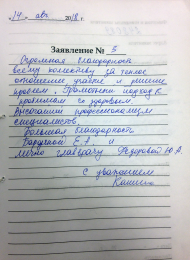 "14" авг 2018 г.
Заявление № 3
Огромная благодарность
всему коллективу за теплое
отношение, участие и решение
проблем. Грамотный подход к
проблемам со здоровьем.
Высочайший профессионализм
специалистов.
Большая благодарность
Е. А. и
лично главврачу Федоровой Ю. А.
С уважением